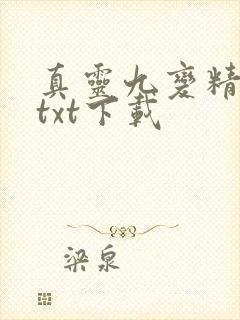 真靈九變精
txt下載
梁泉